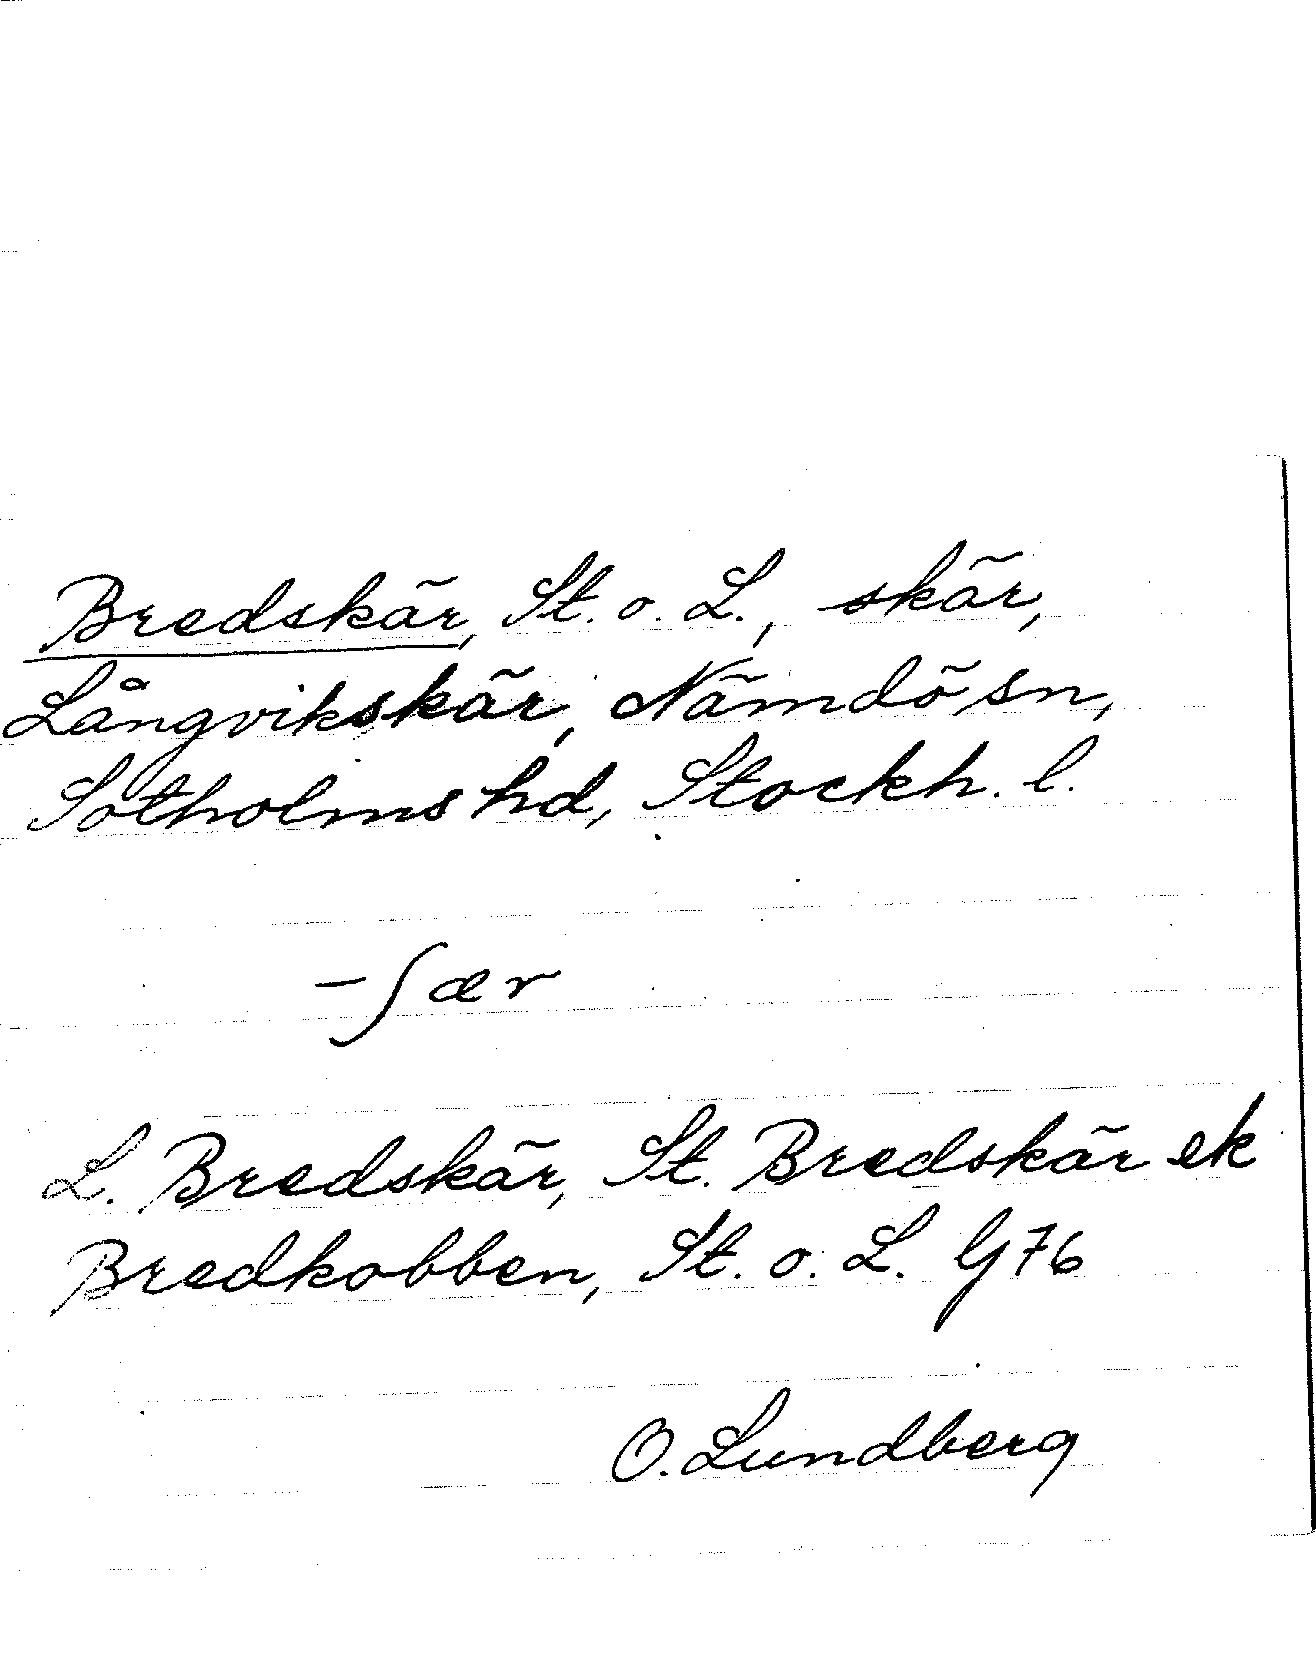 Bredskär, St. o. L., skär,
Långvikskär, Nämdö sn,
Sotholms hd, Stockh. l.
-ʃær
L. Bredskär, St. Bredskär ek
Bredkobben, St. o. L. G 76
O. Lundberg